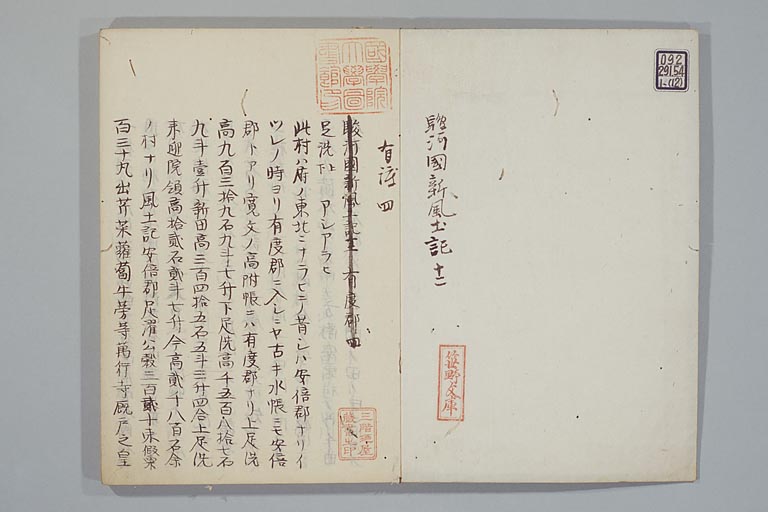 092
291.54
1-(12)
駿河國新風土記 十二
國學院
大學圖
書館印
有渡 四
駿河國新風土記十二 有度郡四
足洗 上下 アシアラヒ
此村ハ府ノ東北ニナラビテ昔シハ安倍郡ナリイ
ツレノ時ヨリ有度郡ニ入シニヤ古キ水帳ニモ安倍
郡トアリ寛文ノ高附帳ニハ有度郡ナリ上足洗
高九百三拾九石九斗七升下足洗高千五百八拾七石
九斗壹升新田高三百四拾五石五斗三升四合上足洗
来迎院領高拾貳石貳斗七升今高貳千八百石余
ノ村ナリ風土記安倍郡足濯公穀三百貳十束假粟
百三十丸出芥菜蘿蔔牛蒡等萬行寺厩戸之皇